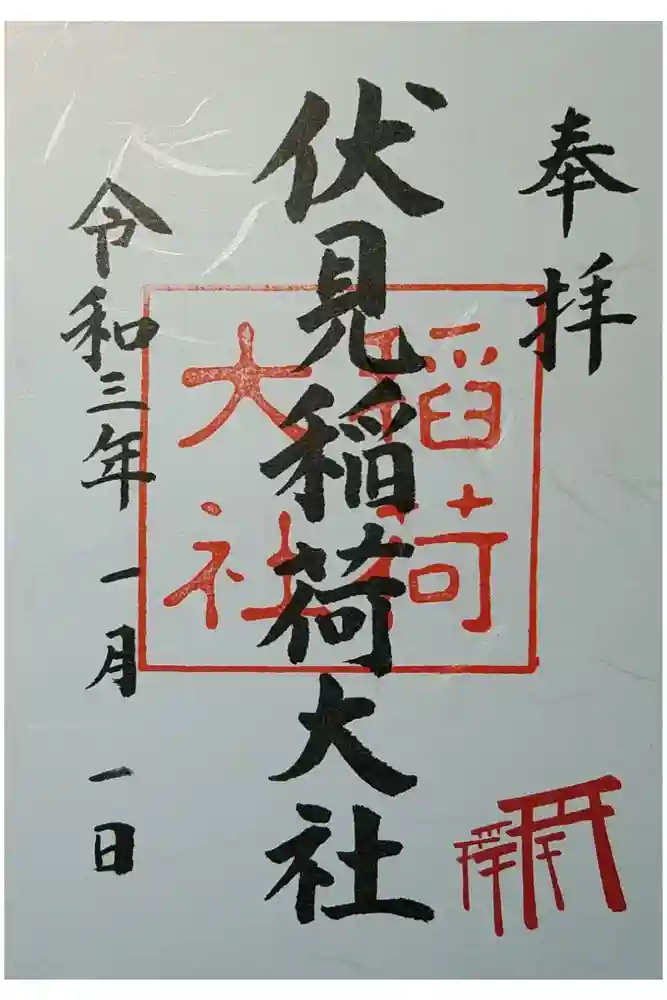 奉拝
伏見稲荷大社
稲荷
大社
令和三年一月一日